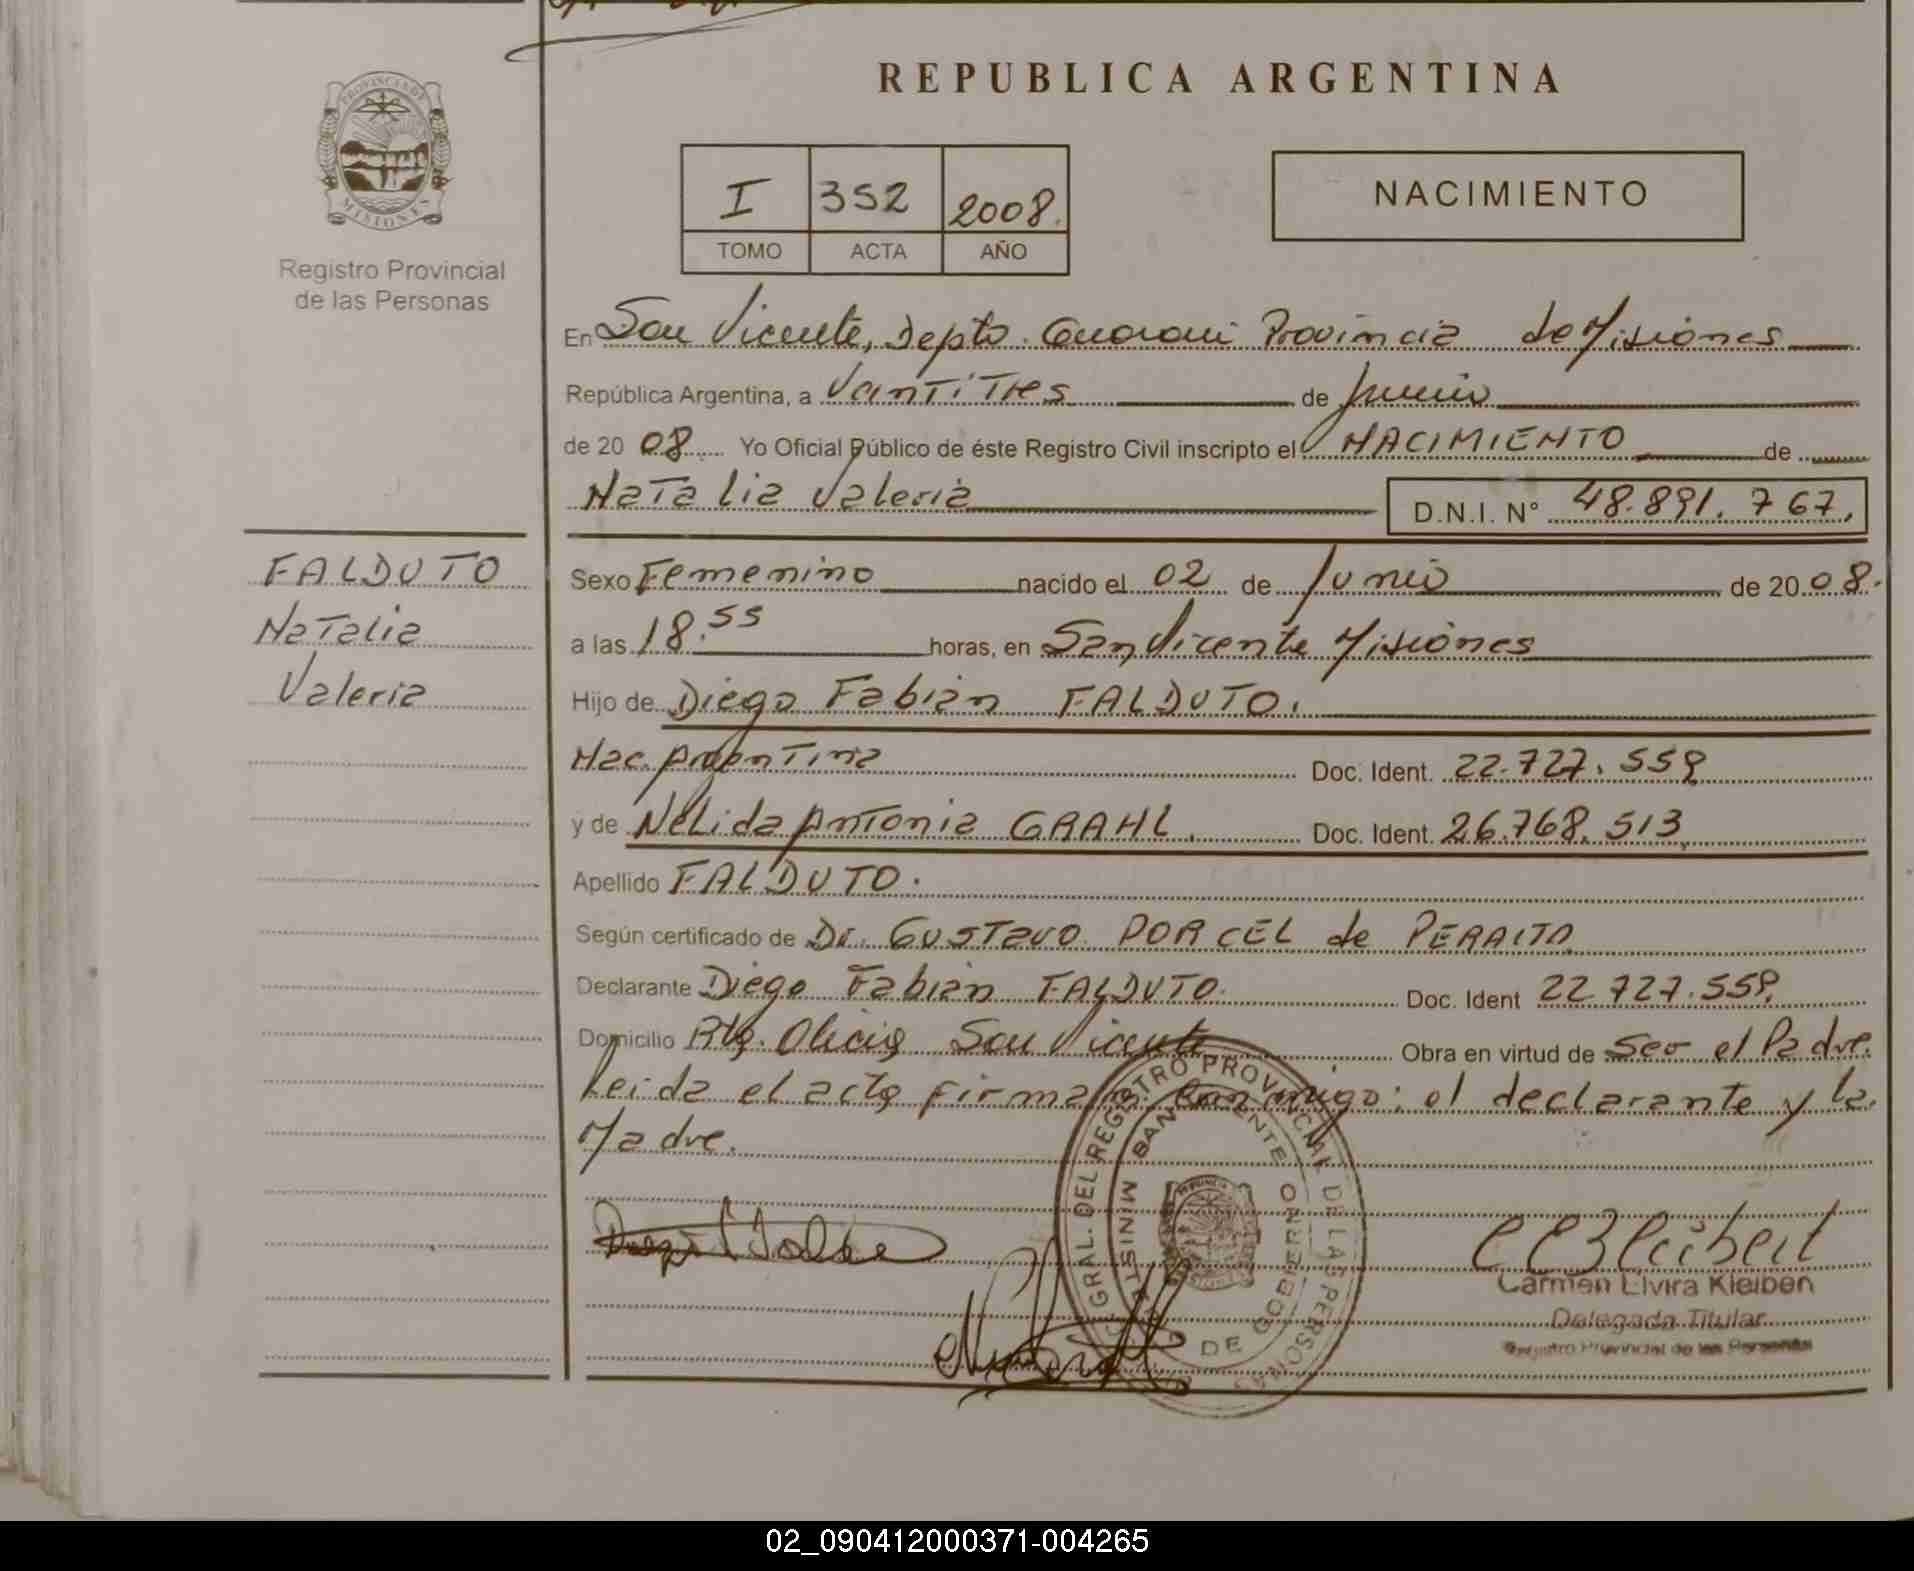 REPUBLICA ARGENTINA
PROVINCIA DE
MISIONES
Registro Provincial
de las Personas
I 352 2008.
TOMO ACTA AÑO
NACIMIENTO
En San Vicente, Depto. Guarani Provincia de Misiones
República Argentina, a Vantitres de Junio
de 2008 Yo Oficial Público de éste Registro Civil inscripto el NACIMIENTO de
Natalia Valeria D.N.I. N° 48.891.767.
FALDUTO
Natalia
Valeria
Sexo Femenino nacido el 02 de Junio de 2008.
a las 18.55 horas, en San Vicente Misiones
Hijo de Diego Fabián FALDUTO.
Nac. Argentina Doc. Ident. 22.727.559
y de Nelida Antonia GRAHL. Doc. Ident. 26.768.513
Apellido FALDUTO.
Según certificado de Dr. Gustavo PORCEL de PERALTA
Declarante Diego Fabián FALDUTO. Doc. Ident 22.727.559.
Domicilio San Vicente Obra en virtud de Ser el Padre.
Leida el acta firman conmigo: el declarante y la
Madre.
GRAL. DEL REGISTRO PROVINCIAL DE LAS PERSONAS
DE GOBIERNO
Carmen Elvira Kleibert
Delegada Titular
Registro Provincial de las Personas
02_090412000371-004265